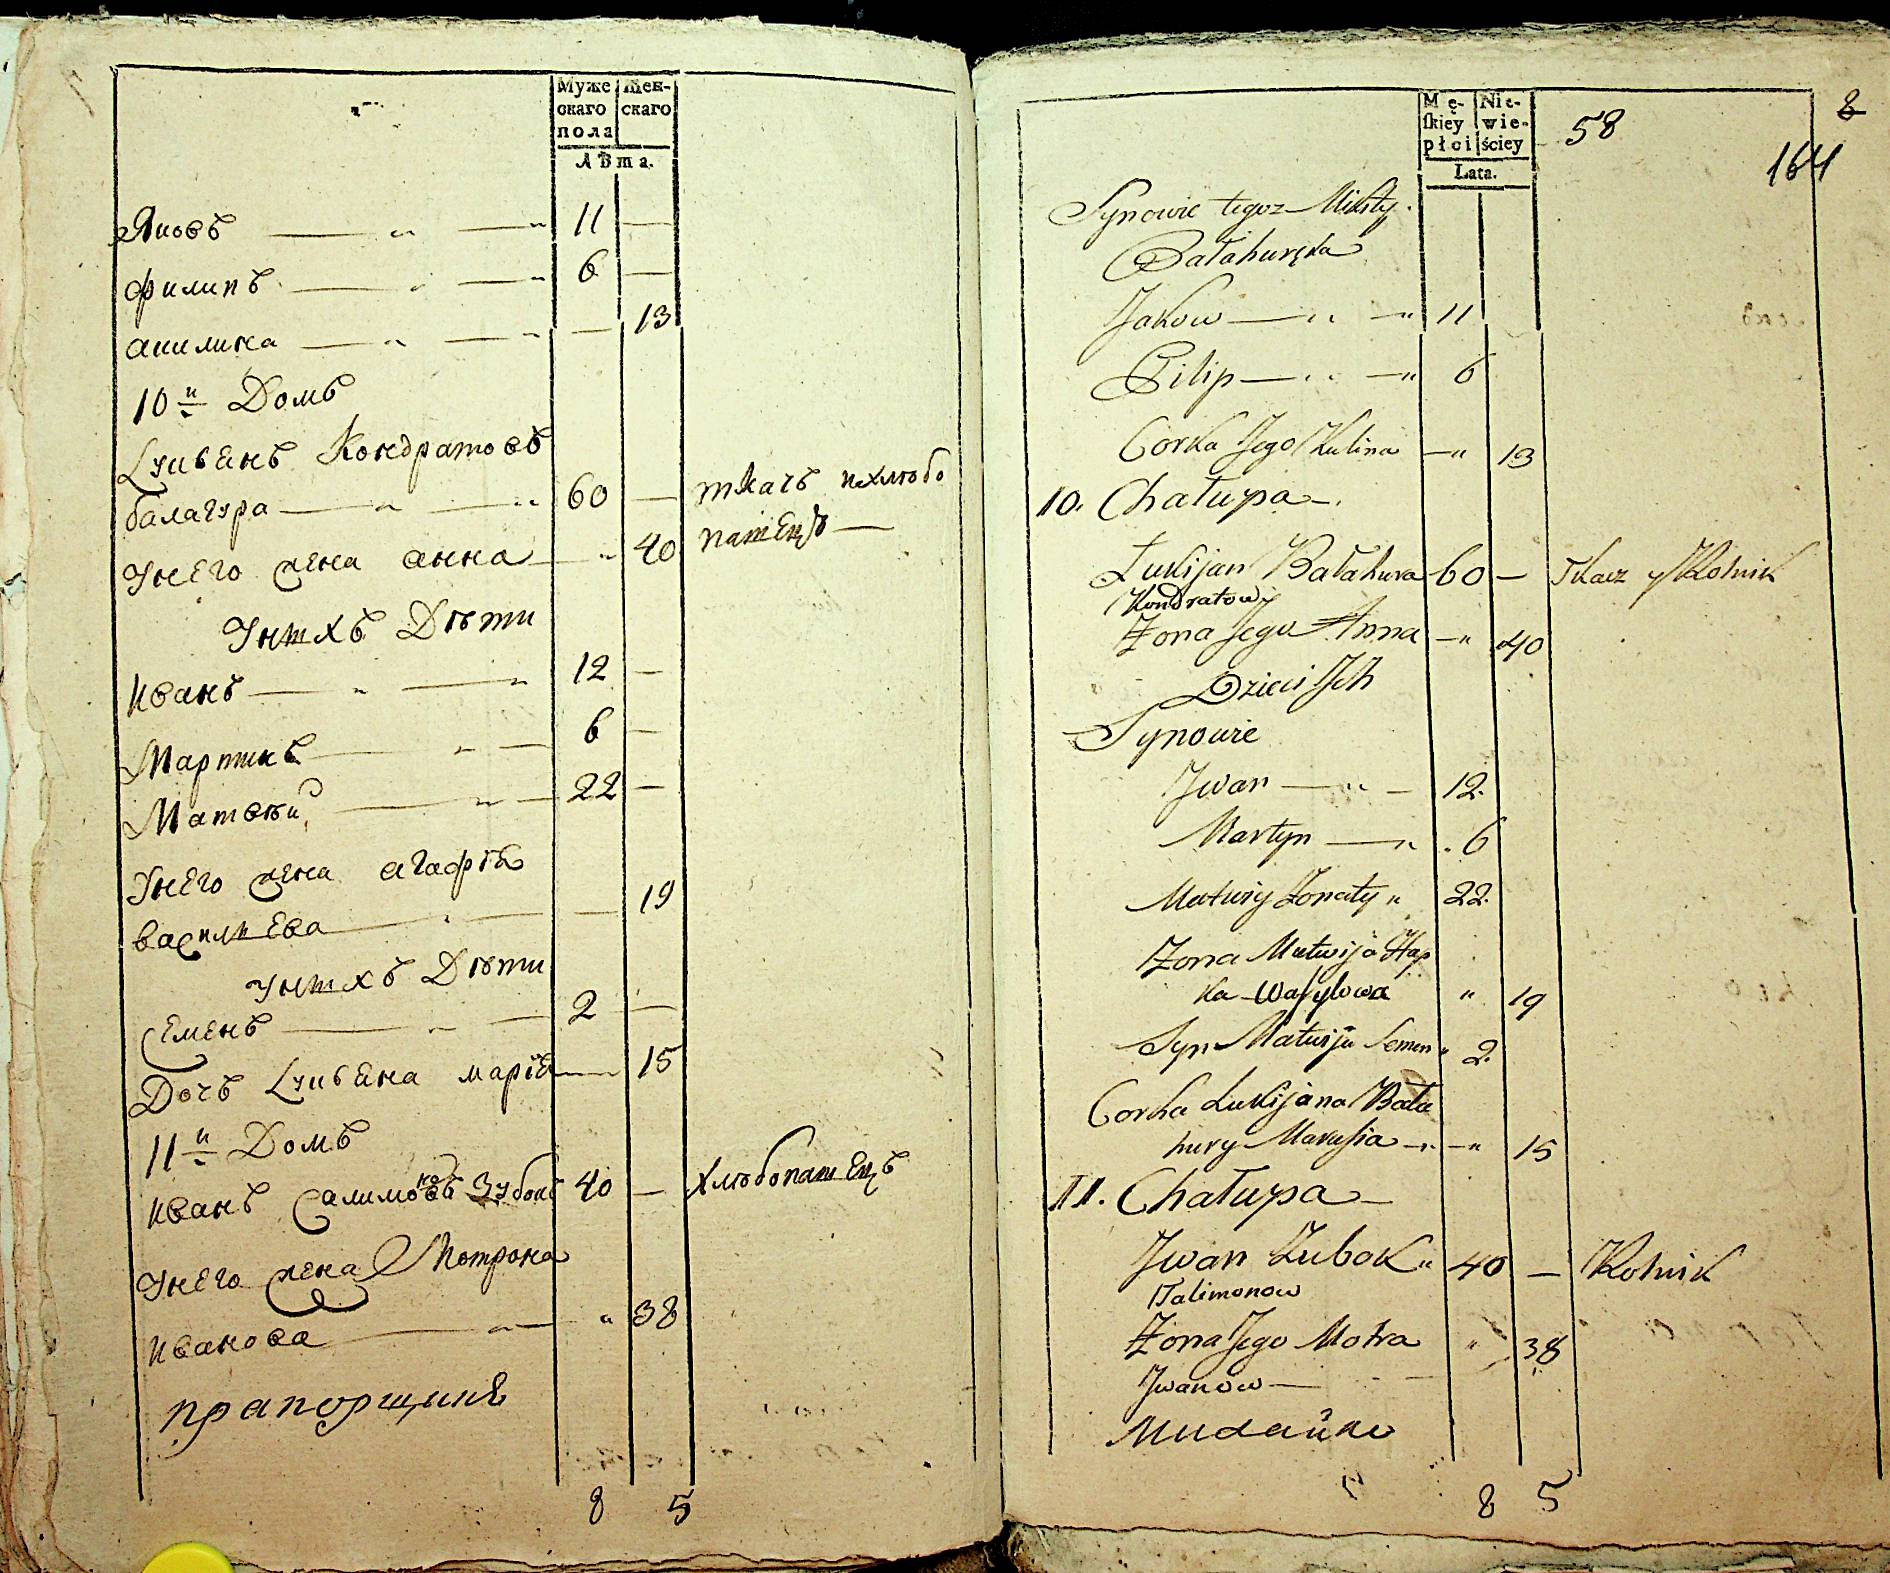 Муже Жен-
скаго скаго
пола
Лѣта.
Яковъ 11 —
Филипъ 6 —
акилина — 13
10й Домъ
Лукьянъ Кондратовъ
балагура 60 — ткачъ и хлѣбо
пашецъ
У него жена анна 40
У нихъ Дѣти
Иванъ 12 —
Мартинъ 6 —
Матвѣй 22 —
У него жена агафія
васильева — 19
У нихъ Дѣти
Семенъ 2 —
Дочь Лукьяна марія 15
11й Домъ
Иванъ Салимоновъ Зубокъ 40 — Хлѣбопашецъ
У него жена Мотрона
Иванова 38
прапорщикъ
8 5
Mę- Nie-
skiey wie-
płci ściey
Lata.
58
8
164
Synowie tegoz Mikity
Bałahuręka
Jakow 11
Filip 6
Corka Jego Kulina 13
10. Chałupa
Łukijan Bałahura 60 — Tkacz y Rolnik
Kondratow
Zona Jego Anna 40
Dzieci Jch
Synowie
Jwan 12.
Martyn 6
Matwiy Zonaty 22.
Zona Matwija Hap
ka Wasylowa 19
Syn Matwija Semen 2.
Corka Łukijana Bała
hury Marusia 15
11. Chałupa
Jwan Zubok 40 — Rolnik
Talimonow
Zona Jego Motra 38
Jwanow
8 5